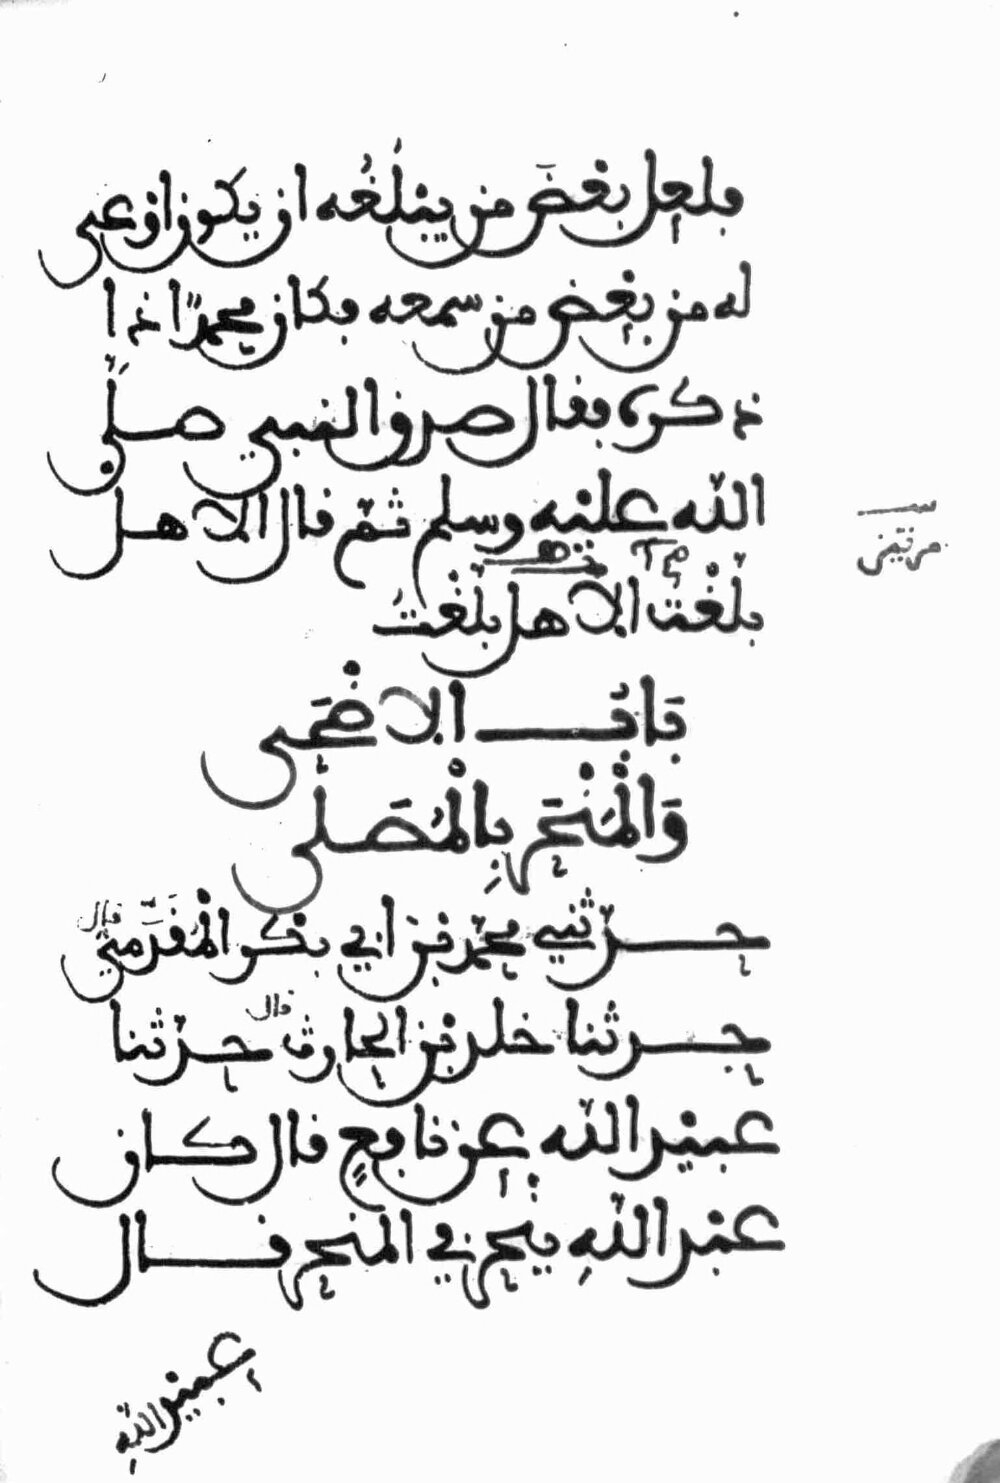 فلعل بعض من يبلغه ان يكون اوعى
له من بعض من سمعه فكان محمد اذا
ذكره فقال صدق النبي صلى
الله عليه وسلم ثم قال الا هل
مرتين
بلغت الا هل بلغت
باب الاضحى
والمنحر بالمصلى
حدثني محمد بن ابي بكر المقدمي قال
حدثنا خلد بن الحارث قال حدثنا
عبيد الله عن نافع قال كان
عبد الله ينحر في المنحر قال
عبيد الله